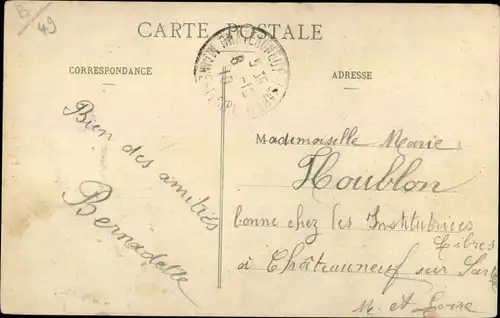 49
CARTE POSTALE
CORRESPONDANCE
ADRESSE
Bien des amitiés
Bernadette
Mademoiselle Marie
Houblon
bonne chez les Institutrices
Libres
à Châteauneuf sur Sarthe
M. et Loire